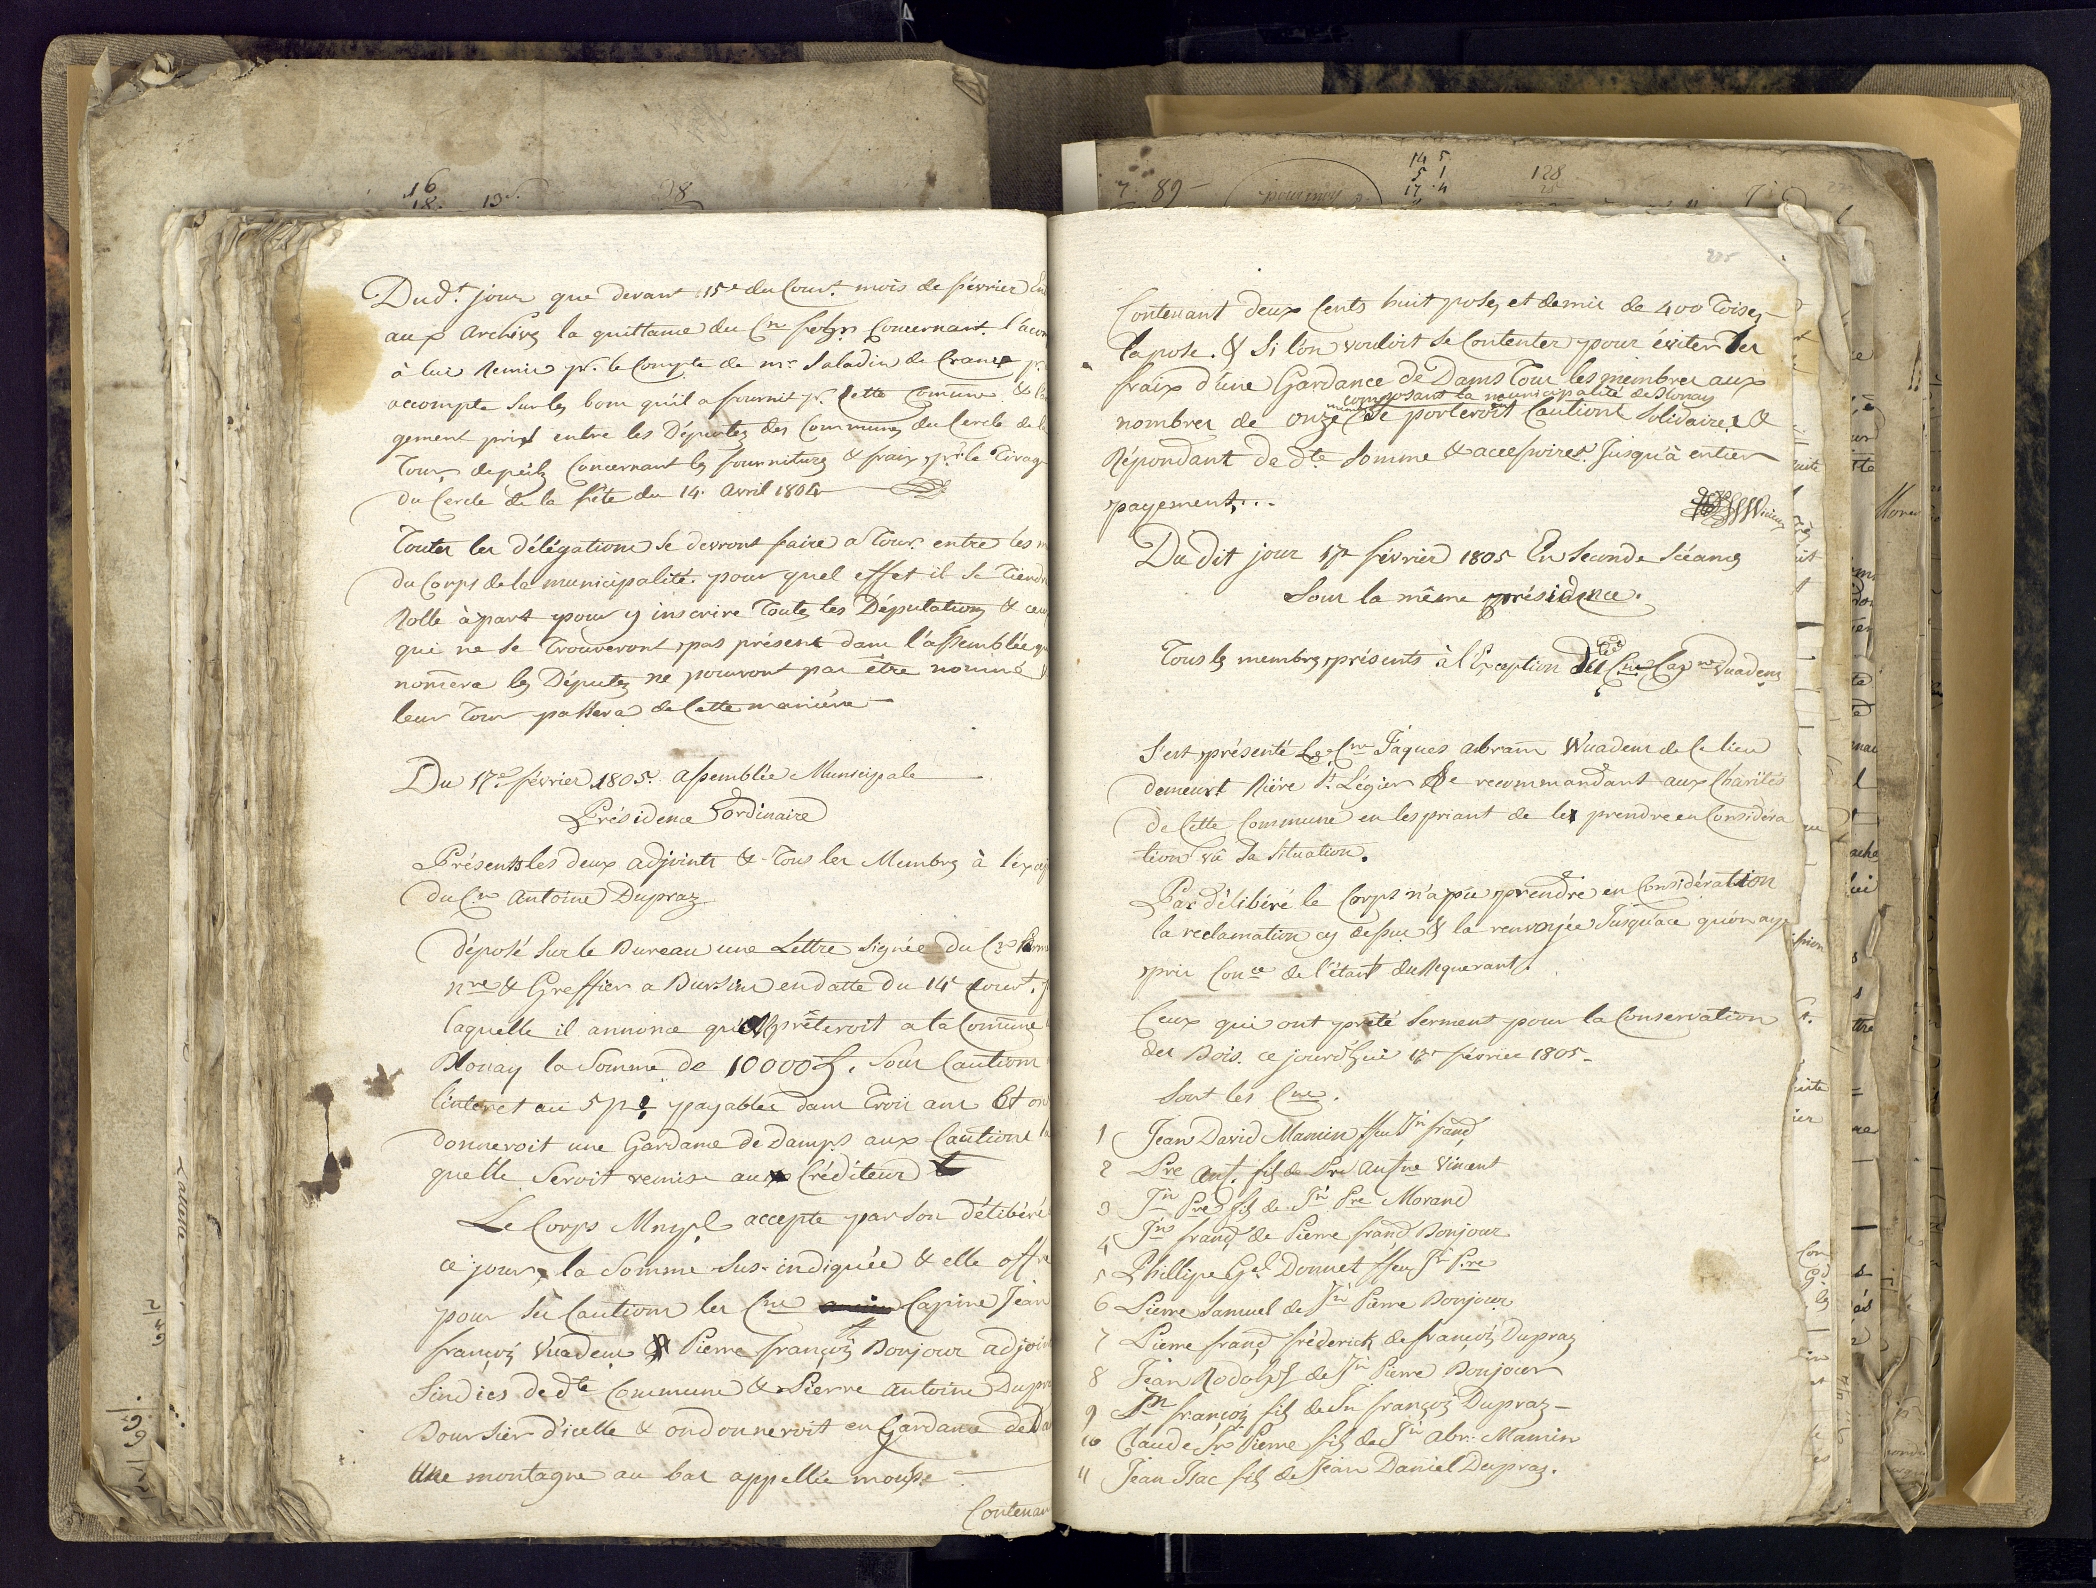 Dud.t jour que devant 15.e du Cour.t mois de février
aux Archives la quittance du C.en Concernant
à lui Remis pr. le Compte de mr. Saladin de Crans pr.
accompte sur les bons qu'il a fournit pr. Cette Comune. &
gement pris entre les Députez des Communes du Cercle de la
Tour, de peilz Concernant les fournitures & fraix pr. le Tirage
du Cercle de la fête du 14. Avril 1804
Toutes les délégations se devront faire a Tour entre les
du Corps de la municipalité, pour quel effet il se Tiendra
Rolle à part pour y inscrire Toutes les Députations & ceux
qui ne se Trouveront pas présent dans l'assemblée
nom̃era les Députez ne pourront pas être nommé
leur Tour passera de Cette maniére
Du 17.e février 1805. assemblée Municipale
Présidence ordinaire
Présents les deux adjoints & Tous les Membres à l'excep
du C.en Antoine Dupraz
déposé sur le Bureau une Lettre signée du C.en
nre & Greffier a Bursins en datte du 14e Cour.t
laquelle il annonce prêteroit a la Com̃une
Blonay la Somme de 10000 sous Cautions
l'interet au 5 p% payables dans Trois ans Et on
donneroit une Gardance de Damps aux Cautions
qu'elle seroit remise aux Créditeur
Le Corps Mnpl accepte par son délibéré
ce jour, la Somme sus-indiquée & elle offre
pour ses Cautions les C.ens Capine Jean
françois Vuadens & Pierre françois Bonjour adjoint
Sindics de dte Commune & Pierre Antoine Dupraz
Boursier d'icelle & on donneroit en Gardance de Da
Une montagne au bas appellée
Contenan
225
Contenant deux Cents huit poses et demie de 400 Toises
la pose. & Si l'on vouloit se Contenter pour éviter les
fraix d'une Gardance de Dams Tous les membres aux
composant la municipalité de Blonay
nombres de onze se porteroit Cautions solidaires &
Répondant de dte Somme & accessoires Jusqu'à entier
payement...
Du dit jour 17e février 1805 En Seconde Séance
Sous la même présidence.
Tous les membres présents à l'Exception du C.en Cap.ne Vuadens
S'est présenté Le C.en Jaques Abram Wuadens de Ce lieu
demeurt Riére St. Légier Se recommandant aux Charités
de Cette Commune en les priant de le prendre en Considéra
tion vû sa situation.
Par délibéré le Corps n'a pu prendre en Considération
la reclamation cy dessus & la renvoyée Jusqu'ace qu'on aye
pris Conce de l'état du Requerant.
Ceux qui ont prêté Serment pour la Conservation
des Bois. ce jourd'hui 17e février 1805-
Sont les C.ens.
1 Jean David Mamin ffeu Jn franç
2 Pre Ant. fils de Pre Antne Vincent
3 Jn Pre fils de Jn Pre Morand
4 Jn franç de Pierre franç Bonjour
5 Phillipe Gel Donnet ffeu Jn P.re
6 Pierre Samuel de Jn Pierre Bonjour
7 Pierre franç fréderick de françois Dupraz
8 Jean Rodolph de Jn Pierre Bonjour
9 Jn françois fils de Jn françois Dupraz-
10 Claude Pierre fils de Jn Abr: Mamin
11 Jean Isac fils de Jean Daniel Dupraz.